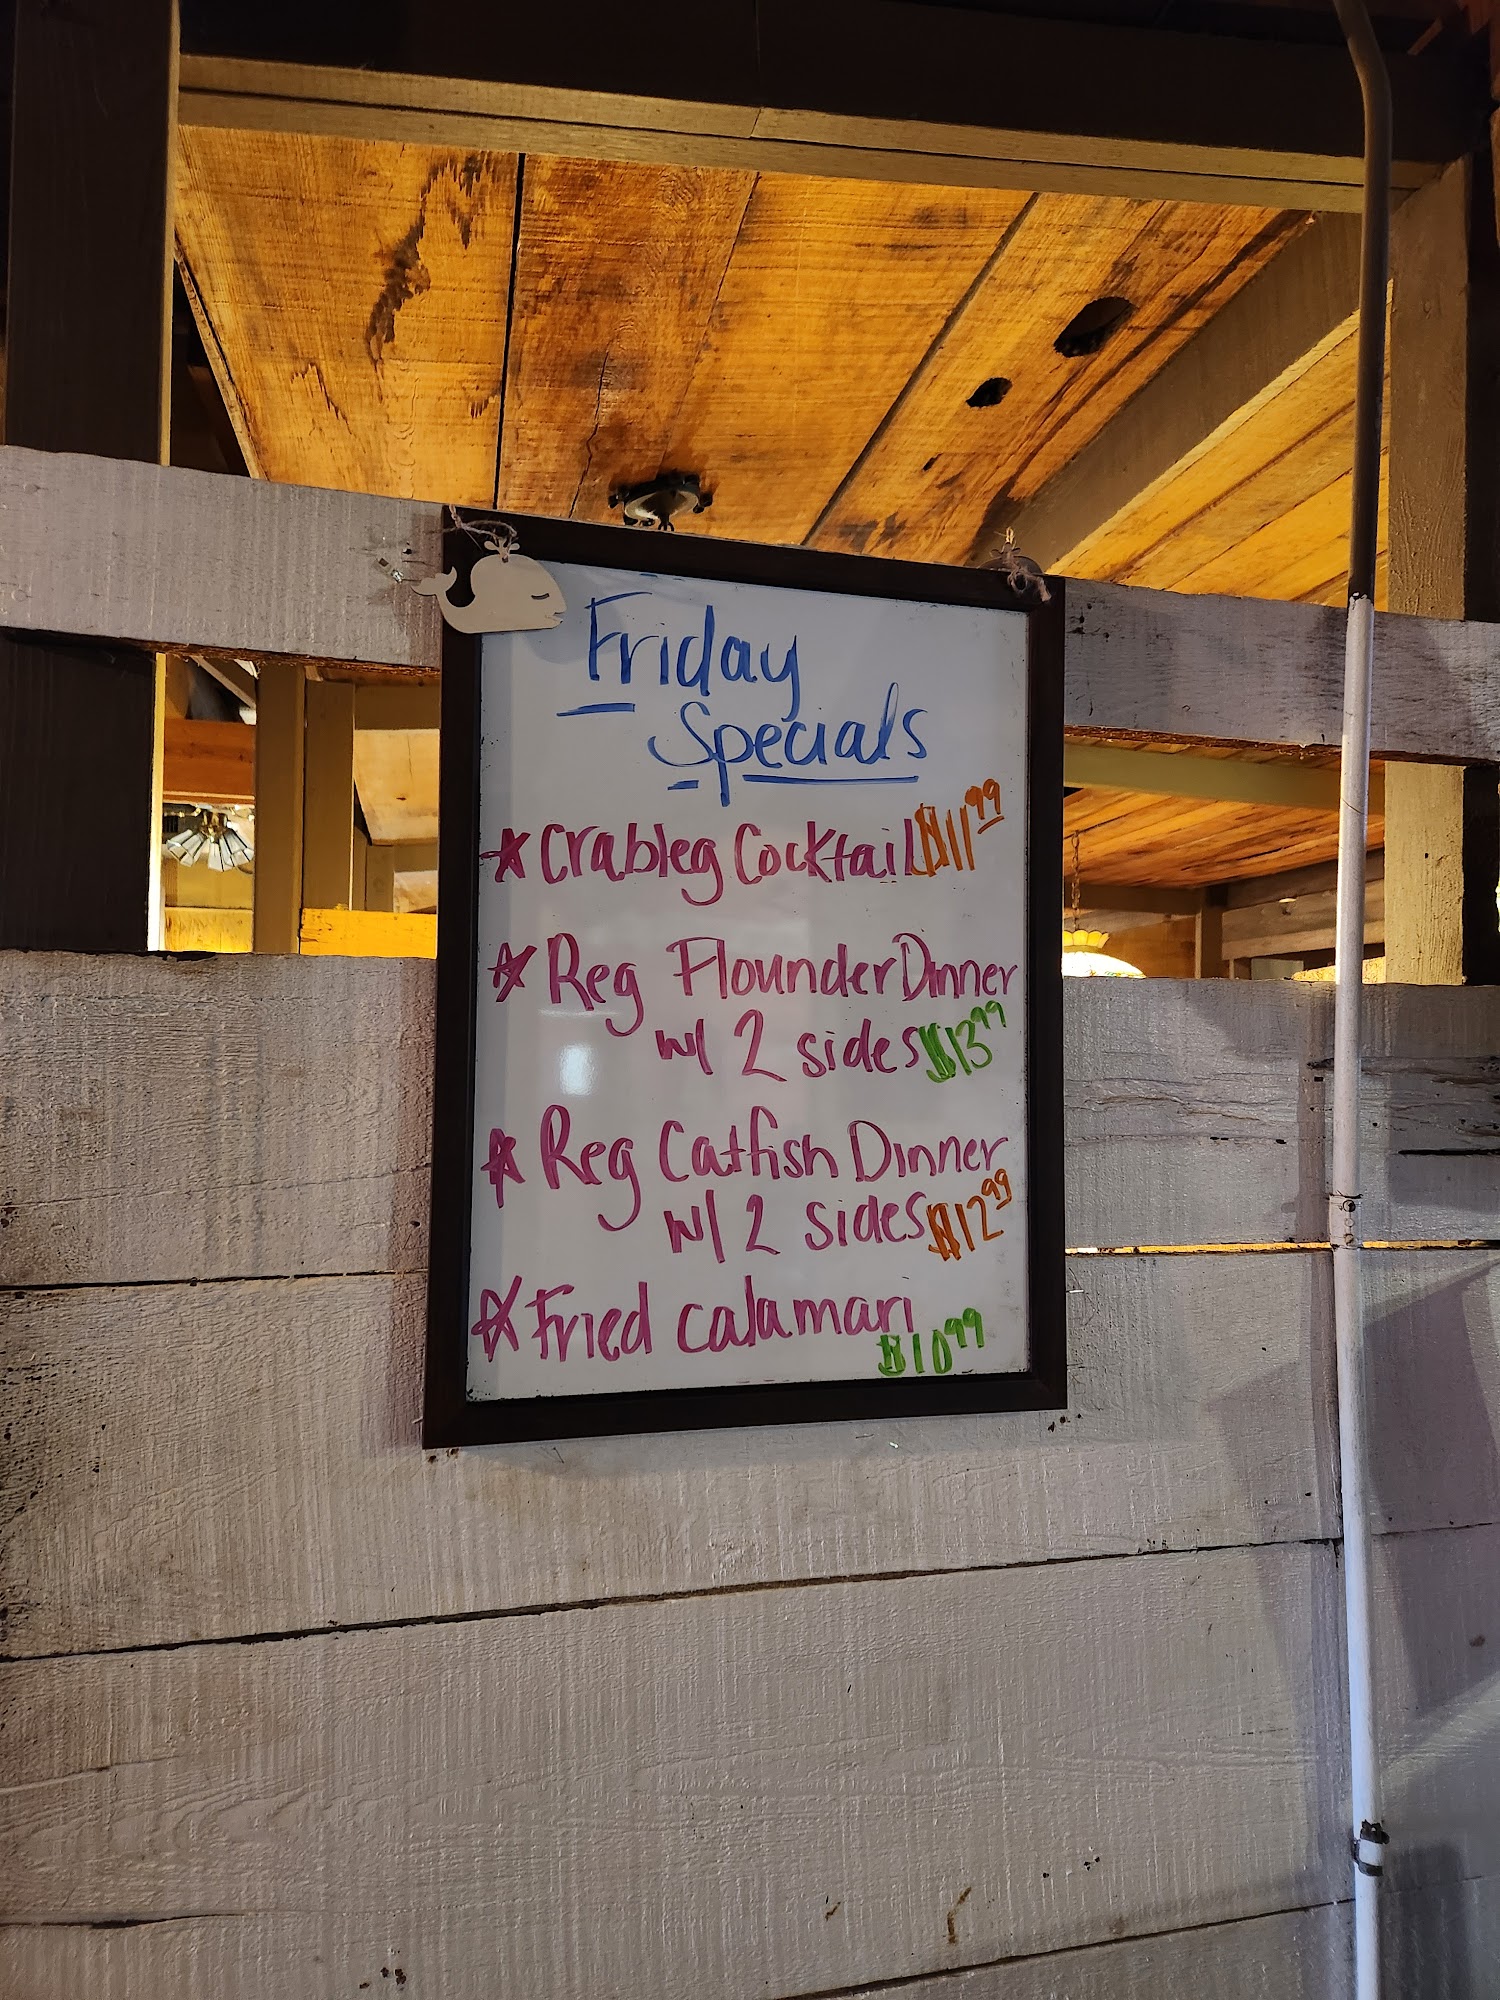 Friday
Specials
☆ Crableg Cocktail $11.99
☆ Reg Flounder Dinner
w/ 2 sides $13.99
☆ Reg Catfish Dinner
w/ 2 sides $12.99
☆ Fried calamari
$10.99